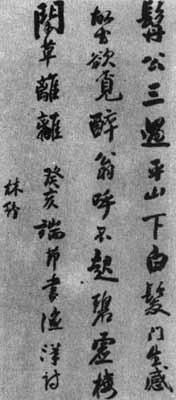 髯公三過平山下白髮門生感
欲覓醉翁呼不起碧虛樓
閣草離離 癸亥端節書漁洋詩
林